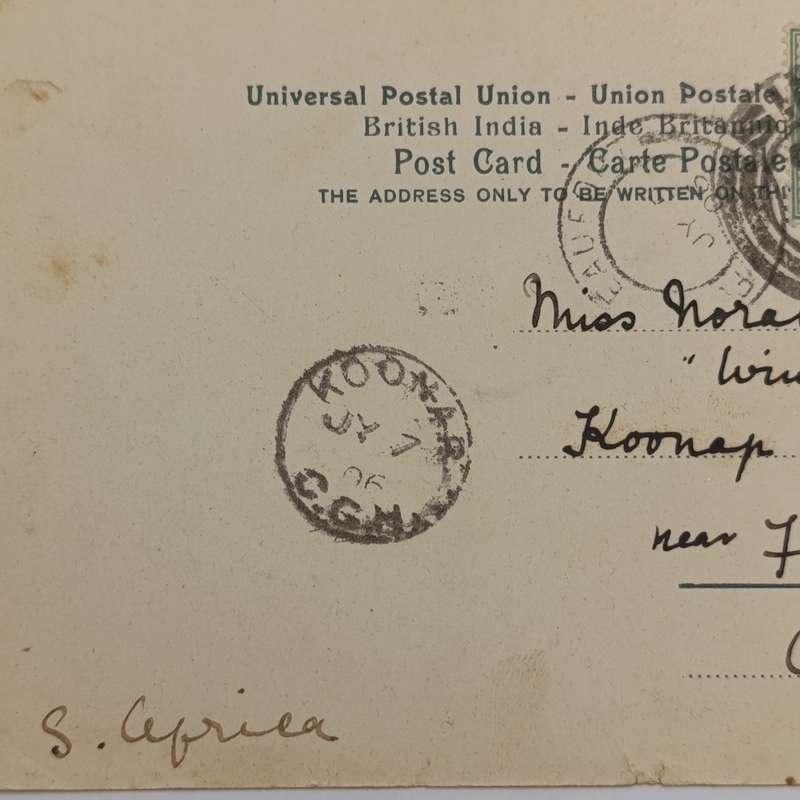 Universal Postal Union - Union Postale
British India - Inde Britanniq
Post Card - Carte Postale
THE ADDRESS ONLY TO BE WRITTEN ON THI
JY
Miss Nora
"
Koonap
near
KOONAP
JY 7
06
C.G.H.
S. Africa